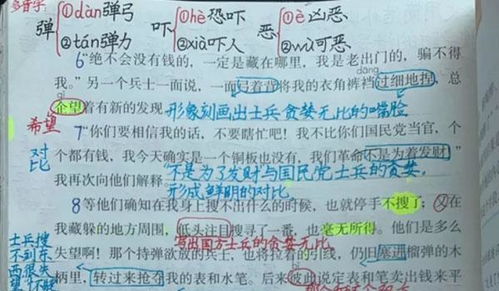 多音字
弹 ①dàn弹弓 ②tán弹力 吓 ①hè恐吓 ②xià吓人 恶 ①è凶恶 ②wù可恶
6“绝不会没有钱的，一定是藏在哪里，我是老出门的，骗不得
我。”另一个兵士一面说，一面弓着背将我的衣角裤裆过细地捏，总
dāng
企望着有新的发现。形象刻画出士兵贪婪无比的嘴脸
希望
7“你们要相信我的话，不要瞎忙吧！我不比你们国民党当官，个
对比
个都有钱，我今天确实是一个铜板也没有，我们革命不是为着发财。”
我再次向他们解释。不是为了发财与国民党士兵的贪婪，
形成鲜明的对比
8等他们确知在我身上搜不出什么的时候，也就停手不搜了；又在
我藏躲的地方周围，低头注目搜寻了一番，也毫无所得。他们是多么
写出国方士兵的贪婪无比
士兵搜不到东西很失望
失望啊！那个持弹欲放的兵士，也将拉着的引线，仍旧塞进榴弹的木
柄里，转过来抢夺我的表和水笔。后来彼此说定表和笔卖出钱来平